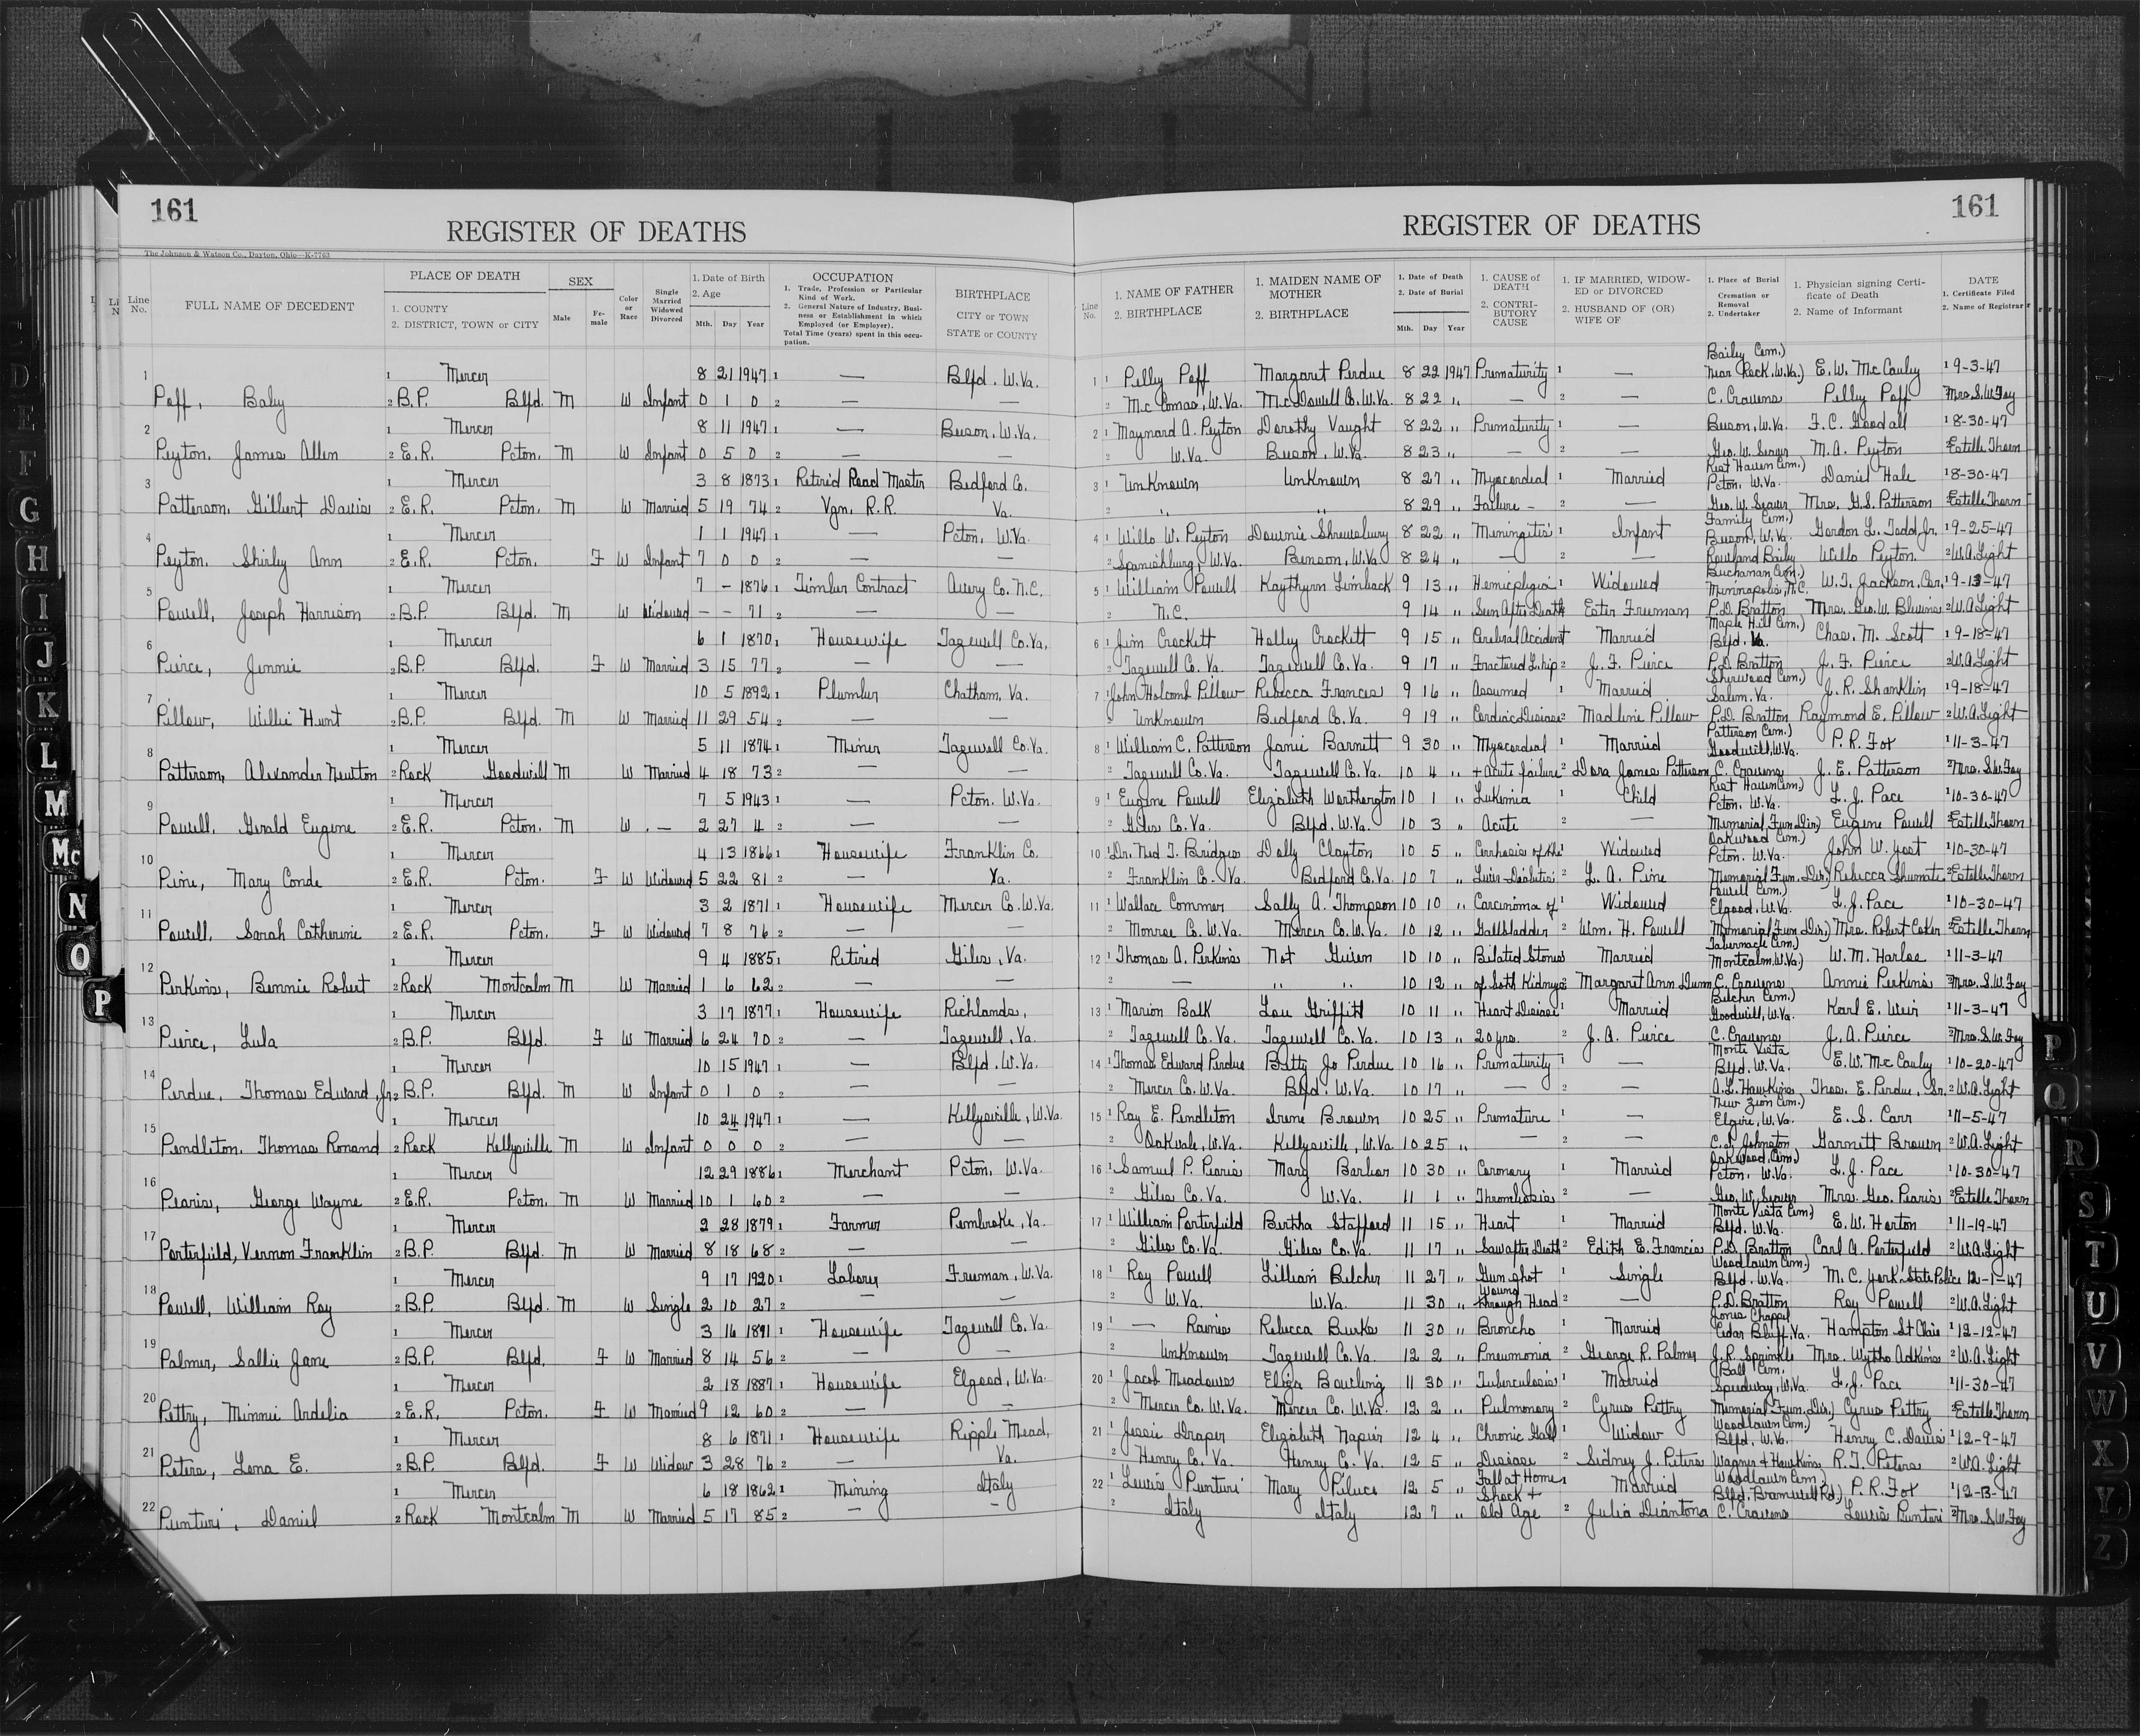 161
REGISTER OF DEATHS
The Johnson & Watson Co., Dayton, Ohio—K-7763
Line No.
FULL NAME OF DECEDENT
PLACE OF DEATH
1. COUNTY
2. DISTRICT, TOWN or CITY
SEX
Male
Fe-male
Color or Race
Single Married Widowed Divorced
1. Date of Birth
2. Age
Mth. Day Year
OCCUPATION
1. Trade, Profession or Particular Kind of Work.
2. General Nature of Industry, Business or Establishment in which Employed (or Employer).
Total Time (years) spent in this occupation.
BIRTHPLACE
CITY or TOWN
STATE or COUNTY
1 1 Mercer 8 21 1947 1 — Blfd. W.Va.
Poff, Baby 2 B.P. Blfd. M W Infant 0 1 0 2 — —
2 1 Mercer 8 11 1947 1 — Beeson, W.Va.
Peyton, James Allen 2 E.R. Pcton. M W Infant 0 5 0 2 — —
3 1 Mercer 3 8 1873 1 Retired Road Master Bedford Co.
Patterson, Gilbert Davis 2 E.R. Pcton. M W Married 5 19 74 2 Vgn. R.R. Va.
4 1 Mercer 1 1 1947 1 — Pcton, W.Va.
Peyton, Shirly Ann 2 E.R. Pcton. F W Infant 7 0 0 2 — —
5 1 Mercer 7 - 1876 1 Timber Contract Avery Co. N.C.
Powell, Joseph Harrison 2 B.P. Blfd. M W Widowed - - 71 2 — —
6 1 Mercer 6 1 1870 1 Housewife Tazewell Co. Va.
Pierce, Jennie 2 B.P. Blfd. F W Married 3 15 77 2 — —
7 1 Mercer 10 5 1892 1 Plumber Chatham, Va.
Pillow, Willie Hunt 2 B.P. Blfd. M W Married 11 29 54 2 — —
8 1 Mercer 5 11 1874 1 Miner Tazewell Co. Va.
Patterson, Alexander Newton 2 Rock Goodwill M W Married 4 18 73 2 — —
9 1 Mercer 7 5 1943 1 — Pcton. W.Va.
Powell, Gerald Eugene 2 E.R. Pcton. M W — 2 27 4 2 — —
10 1 Mercer 4 13 1866 1 Housewife Franklin Co.
Pine, Mary Conde 2 E.R. Pcton. F W Widowed 5 22 81 2 — Va.
11 1 Mercer 3 2 1871 1 Housewife Mercer Co. W.Va.
Powell, Sarah Catherine 2 E.R. Pcton. F W Widowed 7 8 76 2 — —
12 1 Mercer 9 4 1885 1 Retired Giles, Va.
Perkins, Bennie Robert 2 Rock Montcalm M W Married 1 6 62 2 — —
13 1 Mercer 3 17 1877 1 Housewife Richlands,
Pierce, Lula 2 B.P. Blfd. F W Married 6 24 70 2 — Tazewell, Va.
14 1 Mercer 10 15 1947 1 — Blfd. W.Va.
Perdue, Thomas Edward, Jr. 2 B.P. Blfd. M W Infant 0 1 0 2 — —
15 1 Mercer 10 24 1947 1 — Kellysville, W.Va.
Pendleton, Thomas Ronand 2 Rock Kellysville M W Infant 0 0 0 2 — —
16 1 Mercer 12 29 1886 1 Merchant Pcton, W.Va.
Pearis, George Wayne 2 E.R. Pcton. M W Married 10 1 60 2 — —
17 1 Mercer 2 28 1879 1 Farmer Pembroke, Va.
Porterfield, Vernon Franklin 2 B.P. Blfd. M W Married 8 18 68 2 — —
18 1 Mercer 9 17 1920 1 Laborer Freeman, W.Va.
Powell, William Roy 2 B.P. Blfd. M W Single 2 10 27 2 — —
19 1 Mercer 3 16 1891 1 Housewife Tazewell Co. Va.
Palmer, Sallie Jane 2 B.P. Blfd. F W Married 8 14 56 2 — —
20 1 Mercer 2 18 1887 1 Housewife Elgood, W.Va.
Pettry, Minnie Ardelia 2 E.R. Pcton. F W Married 9 12 60 2 — —
21 1 Mercer 8 6 1871 1 Housewife Ripple Mead,
Peters, Lena E. 2 B.P. Blfd. F W Widow 3 28 76 2 — Va.
22 1 Mercer 6 18 1862 1 Mining Italy
Punturi, Daniel 2 Rock Montcalm M W Married 5 17 85 2 — —
161
REGISTER OF DEATHS
Line No.
1. NAME OF FATHER
2. BIRTHPLACE
1. MAIDEN NAME OF MOTHER
2. BIRTHPLACE
1. Date of Death
2. Date of Burial
Mth. Day Year
1. CAUSE of DEATH
2. CONTRIBUTORY CAUSE
1. IF MARRIED, WIDOWED or DIVORCED
2. HUSBAND OF (OR) WIFE OF
1. Place of Burial Cremation or Removal
2. Undertaker
1. Physician signing Certificate of Death
2. Name of Informant
DATE
1. Certificate Filed
2. Name of Registrar
Bailey Cem.)
1 1 Pelley Poff Margaret Perdue 8 22 1947 Prematurity 1 — Near Rock, W.Va.) E.W. McCauley 1 9-3-47
2 McComas, W.Va. McDowell Co. W.Va. 8 22 " — 2 — C. Cravens Pelley Poff 2 Mrs. S.W. Foy
2 1 Maynard A. Peyton Dorothy Vaught 8 22 " Prematurity 1 — Beeson, W.Va. F.C. Goodall 1 8-30-47
2 W.Va. Beeson, W.Va. 8 23 " — 2 — Geo. W. Seaver M.A. Peyton 2 Estelle Thorn
Rest Haven Cem.)
3 1 Unknown Unknown 8 27 " Myocardial 1 Married Pcton, W.Va. Daniel Hale 1 8-30-47
2 " " 8 29 " Failure - 2 — Geo. W. Seaver Mrs. G.S. Patterson 2 Estelle Thorn
Family Cem.)
4 1 Willo W. Peyton Downie Shrewsbury 8 22 " Meningitis 1 Infant Beeson, W.Va. Gordon L. Todd, Jr. 1 9-25-47
2 Spanishburg, W.Va. Benson, W.Va. 8 24 " — 2 — Rowland Bailey Willo Peyton. 2 W.A. Light
Buchanan Cem.)
5 1 William Powell Kaythyrn Limback 9 13 " Hemiplegia 1 Widowed Minnapolis, N.C. W.T. Jackson, Cor. 1 9-13-47
2 N.C. 9 14 " Seen After Death Ester Freeman P.D. Bratton Mrs. Geo. W. Blevins 2 W.A. Light
Maple Hill Cem.)
6 1 Jim Crockett Holley Crockett 9 15 " Cerebral Accident Married Blfd. Va. Chas. M. Scott 1 9-18-47
2 Tazewell Co. Va. Tazewell Co. Va. 9 17 " Fractured L. hip 2 J. F. Pierce P.D. Bratton J. F. Pierce 2 W.A. Light
Sherwood Cem.)
7 1 John Holcomb Pillow Rebecca Frances 9 16 " Assumed 1 Married Salem, Va. J.R. Shanklin 1 9-18-47
2 Unknown Bedford Co. Va. 9 19 " Cardiac Disease 2 Madline Pillow P.D. Bratton Raymond E. Pillow 2 W.A. Light
Patterson Cem.)
8 1 William C. Patterson Jamie Barnett 9 30 " Myocardial 1 Married Goodwill, W.Va. P.R. Fox 1 11-3-47
2 Tazewell Co. Va. Tazewell Co. Va. 10 4 " + Acute failure 2 Dora James Patterson C. Cravens J. E. Patterson 2 Mrs. S.W. Foy
Rest Haven Cem)
9 1 Eugene Powell Elizabeth Worthington 10 1 " Lukemia 1 Child Pcton. W.Va. L. J. Pace 1 10-30-47
2 Giles Co. Va. Blfd. W.Va. 10 3 " Acute 2 — Memorial Fun. Dir.) Eugene Powell 2 Estelle Thorn
Oakwood Cem.)
10 1 Dr. Ned T. Bridges Dolly Clayton 10 5 " Cerrhosis of the 1 Widowed Pcton. W.Va. John W. Yost 1 10-30-47
2 Franklin Co. Va. Bedford Co. Va. 10 7 " Liver Diabetis 2 L. A. Pine Memorial Fun. Dir.) Rebecca Shumate 2 Estelle Thorn
Powell Cem.)
11 1 Wallace Commer Sally A. Thompson 10 10 " Carcinoma of 1 Widowed Elgood, W.Va. L. J. Pace 1 10-30-47
2 Monroe Co. W.Va. Mercer Co. W.Va. 10 12 " Gallbladder 2 Wm. H. Powell Memorial Fun. Dir.) Mrs. Robert Coker 2 Estelle Thorn
Tabernacle Cem.)
12 1 Thomas A. Perkins Not Given 10 10 " Bilated Stones Married Montcalm, W.Va.) W. M. Harloe 1 11-3-47
2 — " " 10 12 " of both Kidneys 2 Margaret Ann Dunn C. Cravens Annie Perkins 2 Mrs. S.W. Foy
Belcher Cem.)
13 1 Marion Balk Lou Griffith 10 11 " Heart Disease 1 Married Goodwill, W.Va. Karl E. Weir 1 11-3-47
2 Tazewell Co. Va. Tazewell Co. Va. 10 13 " 20 yrs. 2 J. A. Pierce C. Cravens J. A. Pierce 2 Mrs. S.W. Foy
Monte Vista
14 1 Thomas Edward Perdue Betty Jo Perdue 10 16 " Prematurity 1 — Blfd. W.Va. E.W. McCauley 1 10-20-47
2 Mercer Co. W.Va. Blfd. W.Va. 10 17 " — 2 — A. L. Hawkins Thos. E. Perdue, Sr. 2 W.A. Light
New Zion Cem.)
15 1 Roy E. Pendleton Irene Brown 10 25 " Premature 1 — W.Va. E. S. Carr 1 11-5-47
2 Oakvale, W.Va. Kellysville, W.Va. 10 25 " — 2 — Johnston Garnett Brown 2 W.A. Light
Oakwood Cem.)
16 1 Samuel P. Pearis Mary Barbor 10 30 " Coronary 1 Married Pcton. W.Va. L. J. Pace 1 10-30-47
2 Giles Co. Va. W.Va. 11 1 " Thrombosis 2 — Geo. W. Seaver Mrs. Geo. Pearis 2 Estelle Thorn
Monte Vista Cem)
17 1 William Porterfield Bertha Stafford 11 15 " Heart 1 Married Blfd. W.Va. E.W. Horton 1 11-19-47
2 Giles Co. Va. Giles Co. Va. 11 17 " Saw after Death 2 Edith E. Francis P.D. Bratton Carl A. Porterfield 2 W.A. Light
Woodlawn Cem.)
18 1 Roy Powell Lillian Belcher 11 27 " Gun shot 1 Single Blfd. W.Va. M. C. York-State Police 12-1-47
Wound
2 W.Va. W.Va. 11 30 " through Head 2 — P.D. Bratton Roy Powell 2 W.A. Light
Jones Chappel
19 1 — Ramie Rebecca Burke 11 30 " Broncho 1 Married Cedar Bluff, Va. Hampton St Clair 1 12-12-47
2 Unknown Tazewell Co. Va. 12 2 " Pneumonia 2 George R. Palmer J. R. Sprinkle Mrs. Wytho Adkins 2 W.A. Light
Ball Cem.
20 1 Jacob Meadows Eliza Bowling 11 30 " Tuberculosis 1 Married Speedway, W.Va. L. J. Pace 1 11-30-47
2 Mercer Co. W.Va. Mercer Co. W.Va. 12 2 " Pulmonary 2 Cyrus Pettry Memorial Fun. Dir.) Cyrus Pettry 2 Estelle Thorn
Woodlawn Cem.)
21 1 Jessie Draper Elizabeth Napier 12 4 " Chronic Gall 1 Widow Blfd. W.Va. Henry C. Davis 1 12-9-47
2 Henry Co. Va. Henry Co. Va. 12 5 " Disease 2 Sidney J. Peters Wagner & Hawkins R. T. Peters 2 W.A. Light
Fall at Home Woodlawn Cem.)
22 1 Lewis Punturi Mary Piluce 12 5 " Shock + Married Blfd. Bramwell Rd.) P.R. Fox 1 12-13-47
2 Italy Italy 12 7 " Old Age 2 Julia Diantona C. Cravens Lewis Punturi 2 Mrs. S.W. Foy
D
E
F
G
H
I
J
K
L
M
Mc
N
O
P
P
Q
R
S
T
U
V
W
X
Y
Z